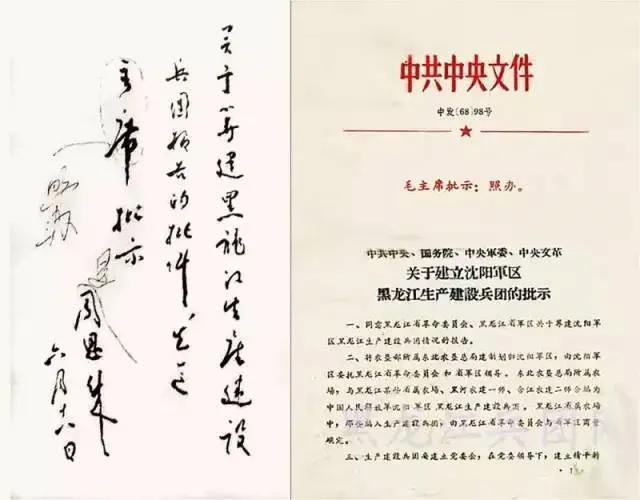 关于筹建黑龙江生产建设
兵团报告的批件,先送
主席批示
照办
周恩来
六月十
中共中央文件
中发〔68〕98号
毛主席批示:照办。
中共中央、国务院、中央軍委、中央文革
关于建立沈阳軍区
黑龙江生产建設兵团的批示
一、同意黑龙江省革命委員会、黑龙江省軍区关于筹建沈阳軍
区黑龙江生产建設兵团情况的报告。
二、将农垦部所属东北农垦总局建制划归沈阳軍区,由沈阳軍
区委托黑龙江省革命委員会和省軍区领导。东北农垦总局所属农
場,与黑龙江某些省属农場、黑河农建一师、合江农建二师合編为
中国人民解放軍沈阳軍区黑龙江生产建設兵团。黑龙江省属农場
中,那些編入生产建設兵团,由黑龙江省革命委員会与省軍区商量
确定。
三、生产建設兵团要建立党委会,在党委领导下,建立精干的
黑龙江兵团网